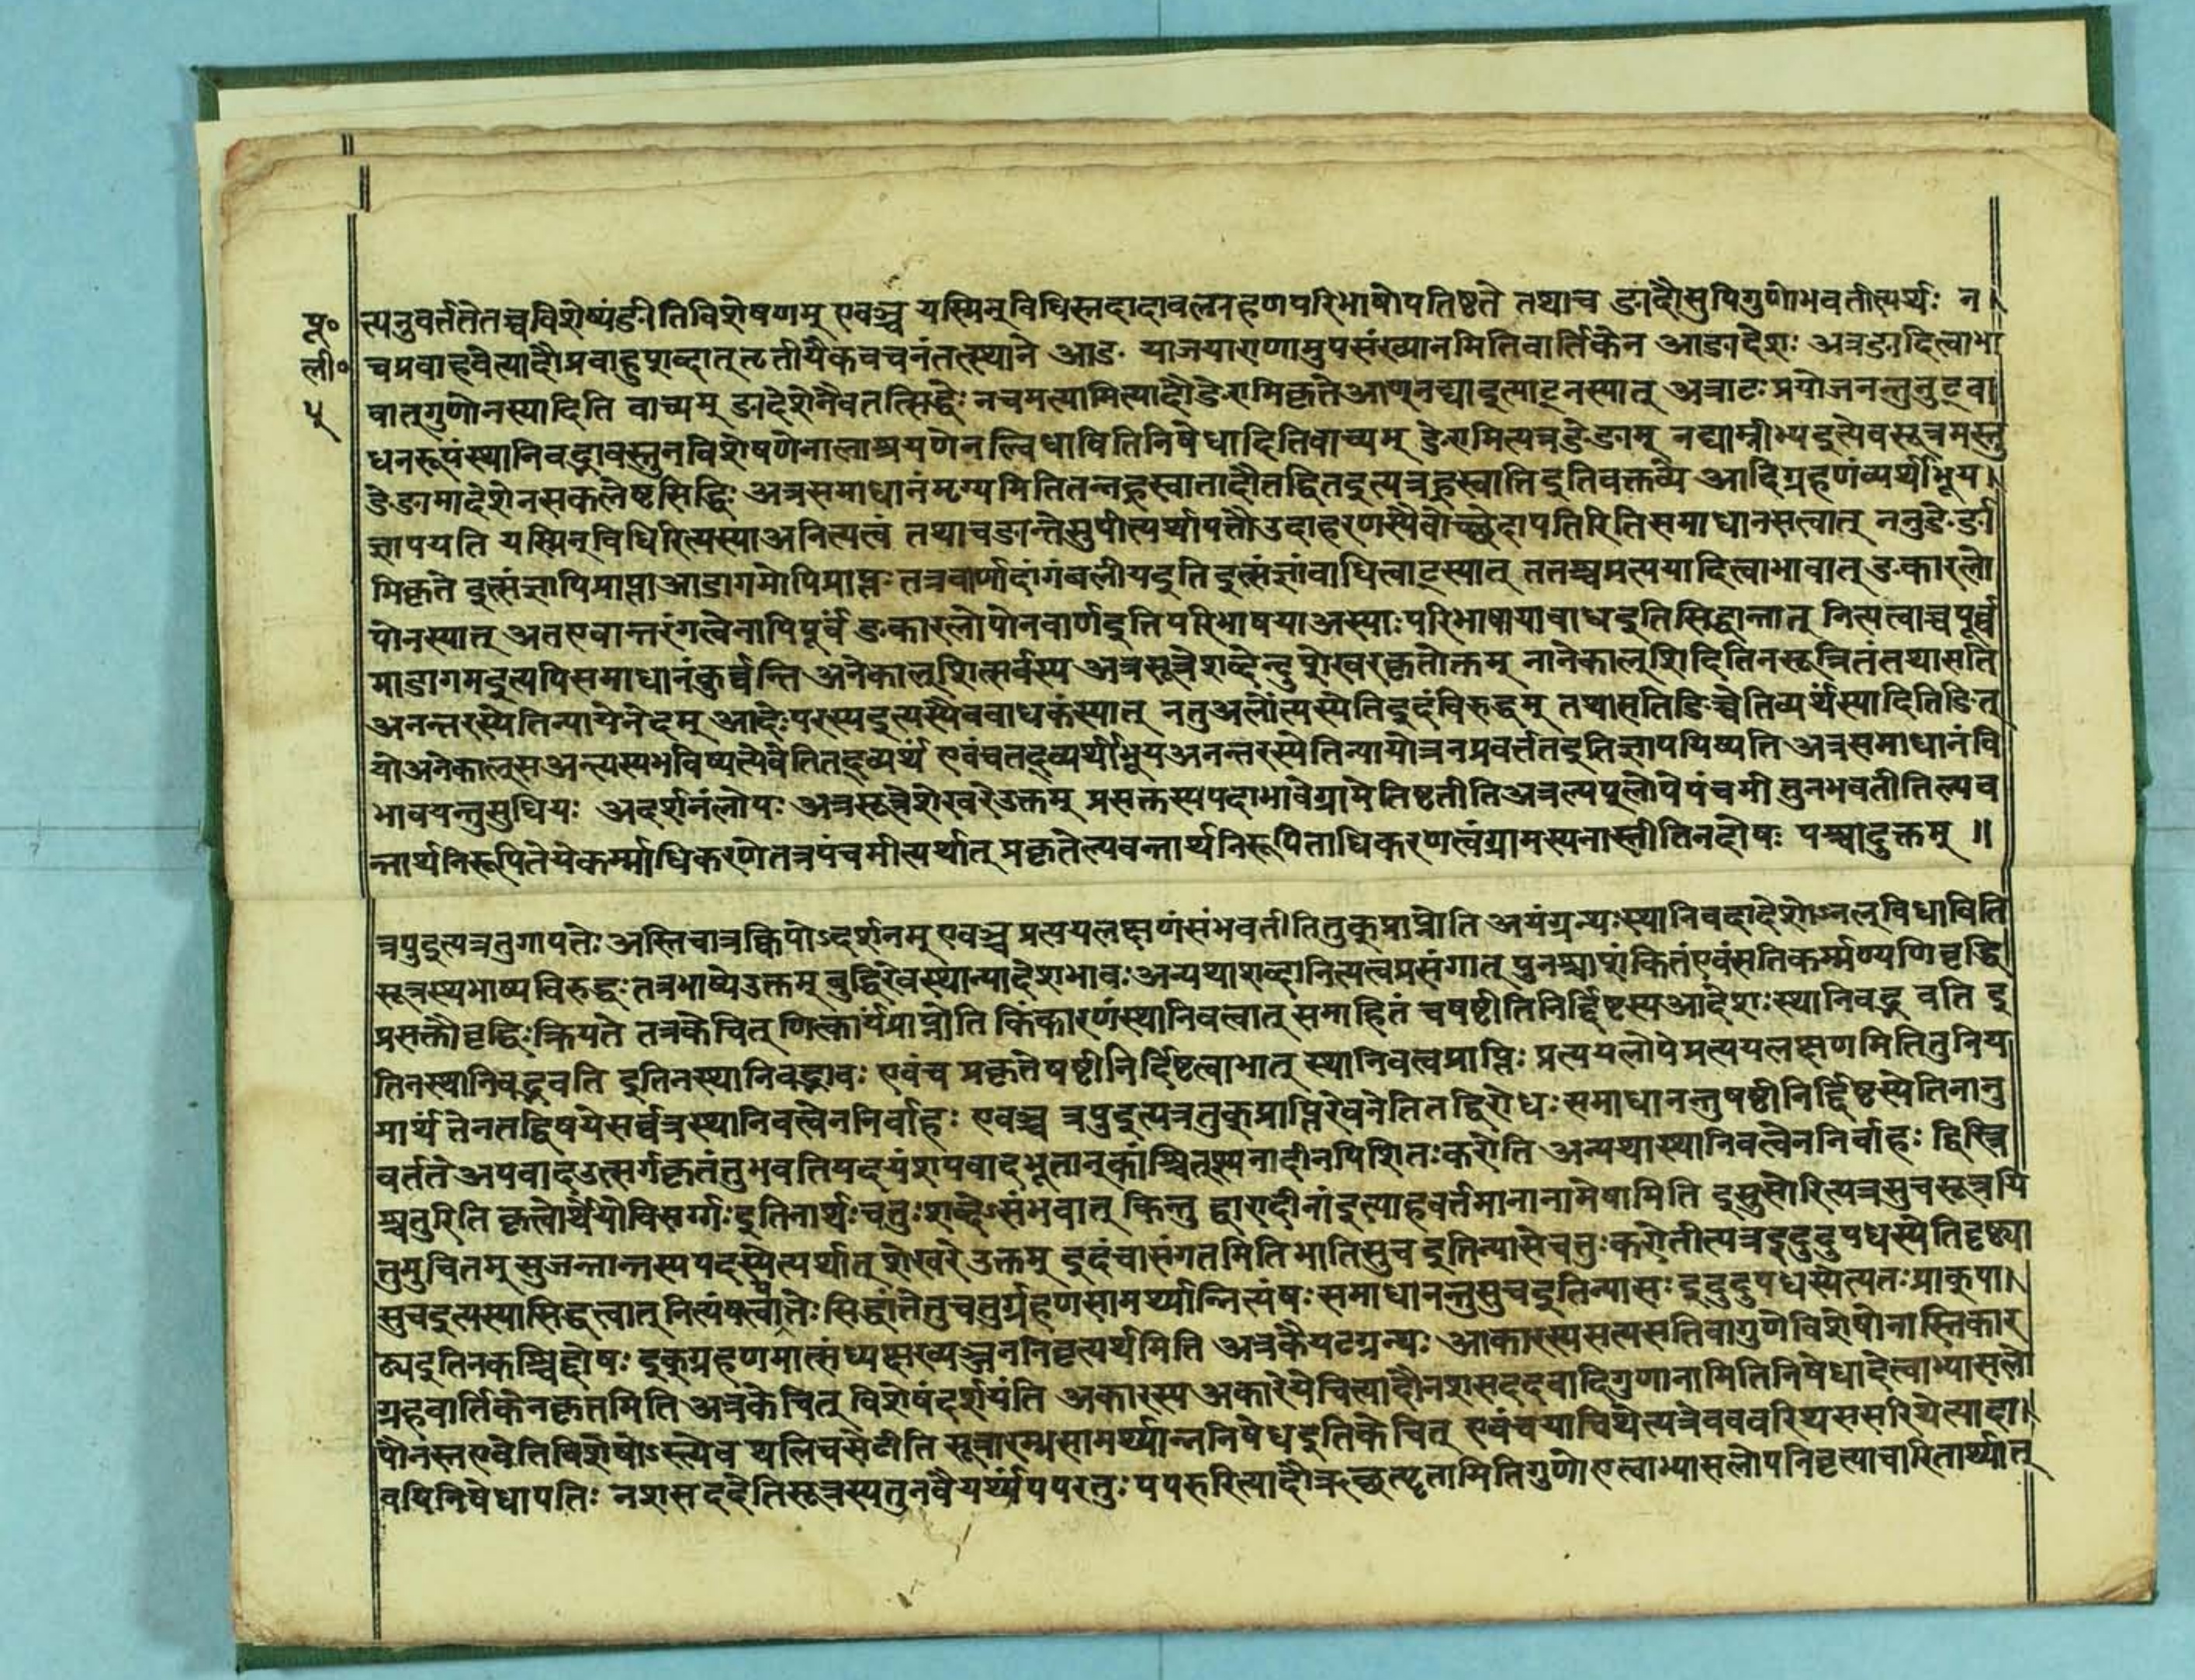 प्र॰
ली॰
५
त्यनुवर्ततेतच्चविशेष्यंङीतिविशेषणम् एवञ्च यस्मिन् विधिस्तदादावल्ग्रहणपरिभाषोपतिष्ठते तथाच ङादौसुपिगुणोभवतीत्यर्थः न।
चप्रवाहवेत्यादौप्रवाहुशब्दात्तृतीयैकवचनंतत्स्थाने आङ् याजयाराणामुपसंख्यानमितिवार्तिकेन आङादेशः अत्रङादित्वाभा
वात्गुणोनस्यादिति वाच्यम् ङादेशेनैवतत्सिद्धेः नचमत्यामित्यादौङेरामिकृतेआण्नद्याइत्याट्नस्यात् अत्राटःप्रयोजनन्तुनुट्वा
धनरूपंस्थानिवद्भावस्तुनविशेषणेनालाश्रयणेनल्विधावितिनिषेधादितिवाच्यम् ङेरामित्यत्रङेङाम् नद्याम्नीभ्यइत्येवसूत्रमस्तु
ङेङामादेशेनसकलेष्टसिद्धिः अत्रसमाधानंमृग्यमितितन्नह्रस्वातादौतद्धितइत्यत्रह्रस्वात्तिइतिवक्तव्ये आदिग्रहणंव्यर्थीभूय।
ज्ञापयति यस्मिन्विधिरित्यस्याअनित्यत्वं तथाचङान्तेसुपीत्यर्थापत्तौउदाहरणस्यैवोच्छेदापतिरितिसमाधानसत्वात् ननुङेर्ङा
मिकृते इत्संज्ञापिप्राप्ताआडागमोपिप्राप्तः तत्रवार्णादांगंबलीयइति इत्संज्ञांवाधित्वाट्स्यात् ततश्चप्रत्ययादित्वाभावात् ङकारलो
पोनस्यात् अतएवान्तरंगत्वेनापिपूर्वं ङकारलोपोनवार्णइतिपरिभाषयाअस्याःपरिभाषायावाधइतिसिद्धान्तात् नित्यत्वाच्चपूर्व्व
माडागमइत्यपिसमाधानंकुर्व्वन्ति अनेकाल्शित्सर्वस्य अत्रसूत्रेशब्देन्दुशेखरकृतोक्तम् नानेकाल्शिदितिनसूत्रितंतथासति
अनन्तरस्येतिन्यायेनेदम् आदेःपरस्यइत्यस्यैववाधकंस्यात् नतुअलोंत्यस्येतिइदंविरुद्धम् तथासतिङिच्चेतिव्यर्थंस्यादितिङित्
योअनेकाल्सअन्त्यस्यभविष्यत्येवेतितद्व्यर्थं एवंचतद्व्यर्थीभूयअनन्तरस्येतिन्यायोत्रनप्रवर्त्ततइतिज्ञापयिष्यति अत्रसमाधानंवि
भावयन्तुसुधियः अदर्शनंलोपः अत्रसूत्रेशेखरेउक्तम् प्रसक्तस्यपदाभावेग्रामेतिष्ठतीतिअत्रल्यप्लोपेपंचमी तुनभवतीतिल्यव
न्तार्थनिरूपितेयेकर्म्माधिकरणेतत्रपंचमीत्यर्थात् प्रकृतेल्यवन्तार्थनिरूपिताधिकरणत्वंग्रामस्यनास्तीतिनदोषः पश्चादुक्तम् ॥
त्रपुइत्यत्रतुगापत्तेः अस्तिचात्रक्विपोऽदर्शनम् एवञ्च प्रत्ययलक्षणंसंभवतीतितुक्प्राप्नोति अयंग्रन्थःस्थानिवदादेशोऽनल्विधाविति
सूत्रस्यभाष्यविरुद्धः तत्रभाष्येउक्तम् बुद्धिरेवस्थान्यादेशभावःअन्यथाशब्दानित्यत्वप्रसंगात् पुनश्चाशंकितंएवंसतिकर्म्मण्यणिवृद्धि
प्रसक्तौवृद्धिःक्रियते तत्रकेचित् णित्कार्यंप्राप्नोति किंकारणंस्थानिवत्वात् समाहितं चषष्टीतिनिर्द्दिष्टस्यआदेशःस्थानिवद्भ वति इ
तिनस्थानिवद्भवति इतिनस्थानिवद्भावः एवंच प्रकृतेषष्टीनिर्दिष्टत्वाभात् स्थानिवत्वप्राप्तिः प्रत्ययलोपेप्रत्ययलक्षणमितितुनिय
मार्थं तेनतद्विषयेसर्व्वत्रस्थानिवत्वेननिर्वाहः एवञ्च त्रपुइत्यत्रतुक्प्राप्तिरेवनेतितद्विरोधः समाधानन्तुषष्टीनिर्द्दिष्टस्येतिनानु
वर्ततेअपवादउत्सर्गकृतंतुभवतियदयंशपवादभूतान्कांश्चित्श्यनादीनपिशितःकरोति अन्यथास्थानिवत्वेननिर्वाहः द्विस्त्रि
श्चतुरिति कृत्वोर्थेयोविसर्ग्गःइतिनार्थःचतुःशब्देऽसंभवात् किन्तु द्वारादीनांइत्याहवर्त्तमानानामेषामिति इसुसोरित्यत्रसुचसूत्रयि
तुमुचितम् सुजन्तान्तस्यपदस्येत्यर्थात् शेखरे उक्तम् इदंचासंगतमिति भातिसुच इतिन्यासेचतुःकरोतीत्यत्रइदुदुपधस्येतिदृष्ट्या
सुचइत्यस्यासिद्धत्वात् नित्यंषत्वापत्तेः सिद्धांतेतुचतुर्ग्रहणसामर्थ्यान्नित्यंषः समाधानन्तुसुचइतिन्यासः इदुदुपधस्येत्यतःप्राक्पा।
ठ्यइतिनकश्चिद्दोषः इक्ग्रहणमात्संध्यक्षरव्यञ्जननिवृत्यर्थमिति अत्रकैयटग्रन्थः आकारस्यसत्यसतिवागुणेविशेषोनास्तिकार
ग्रहवार्तिकेनकृतमिति अत्रकेचित् विशेषंदर्शयंति अकारस्य अकारेयेचित्यादौनशसददवादिगुणानामितिनिषेधादेत्वाभ्यासलो
पौनस्तएवेतिविशेषोऽस्त्येव थलिचसेटीति सूत्रारम्भसामर्थ्यान्ननिषेधइतिकेचित् एवंचयाचिथेत्यत्रेवववरिथससरिथेत्यादा।
वपिनिषेधापत्तिः नशसददेतिसूत्रस्यतुनवैयर्थ्यंपपरतुः पपरुरित्यादौऋच्छत्यॄतामितिगुणेएत्वाभ्यासलोपनिवृत्याचारितार्थ्यात्